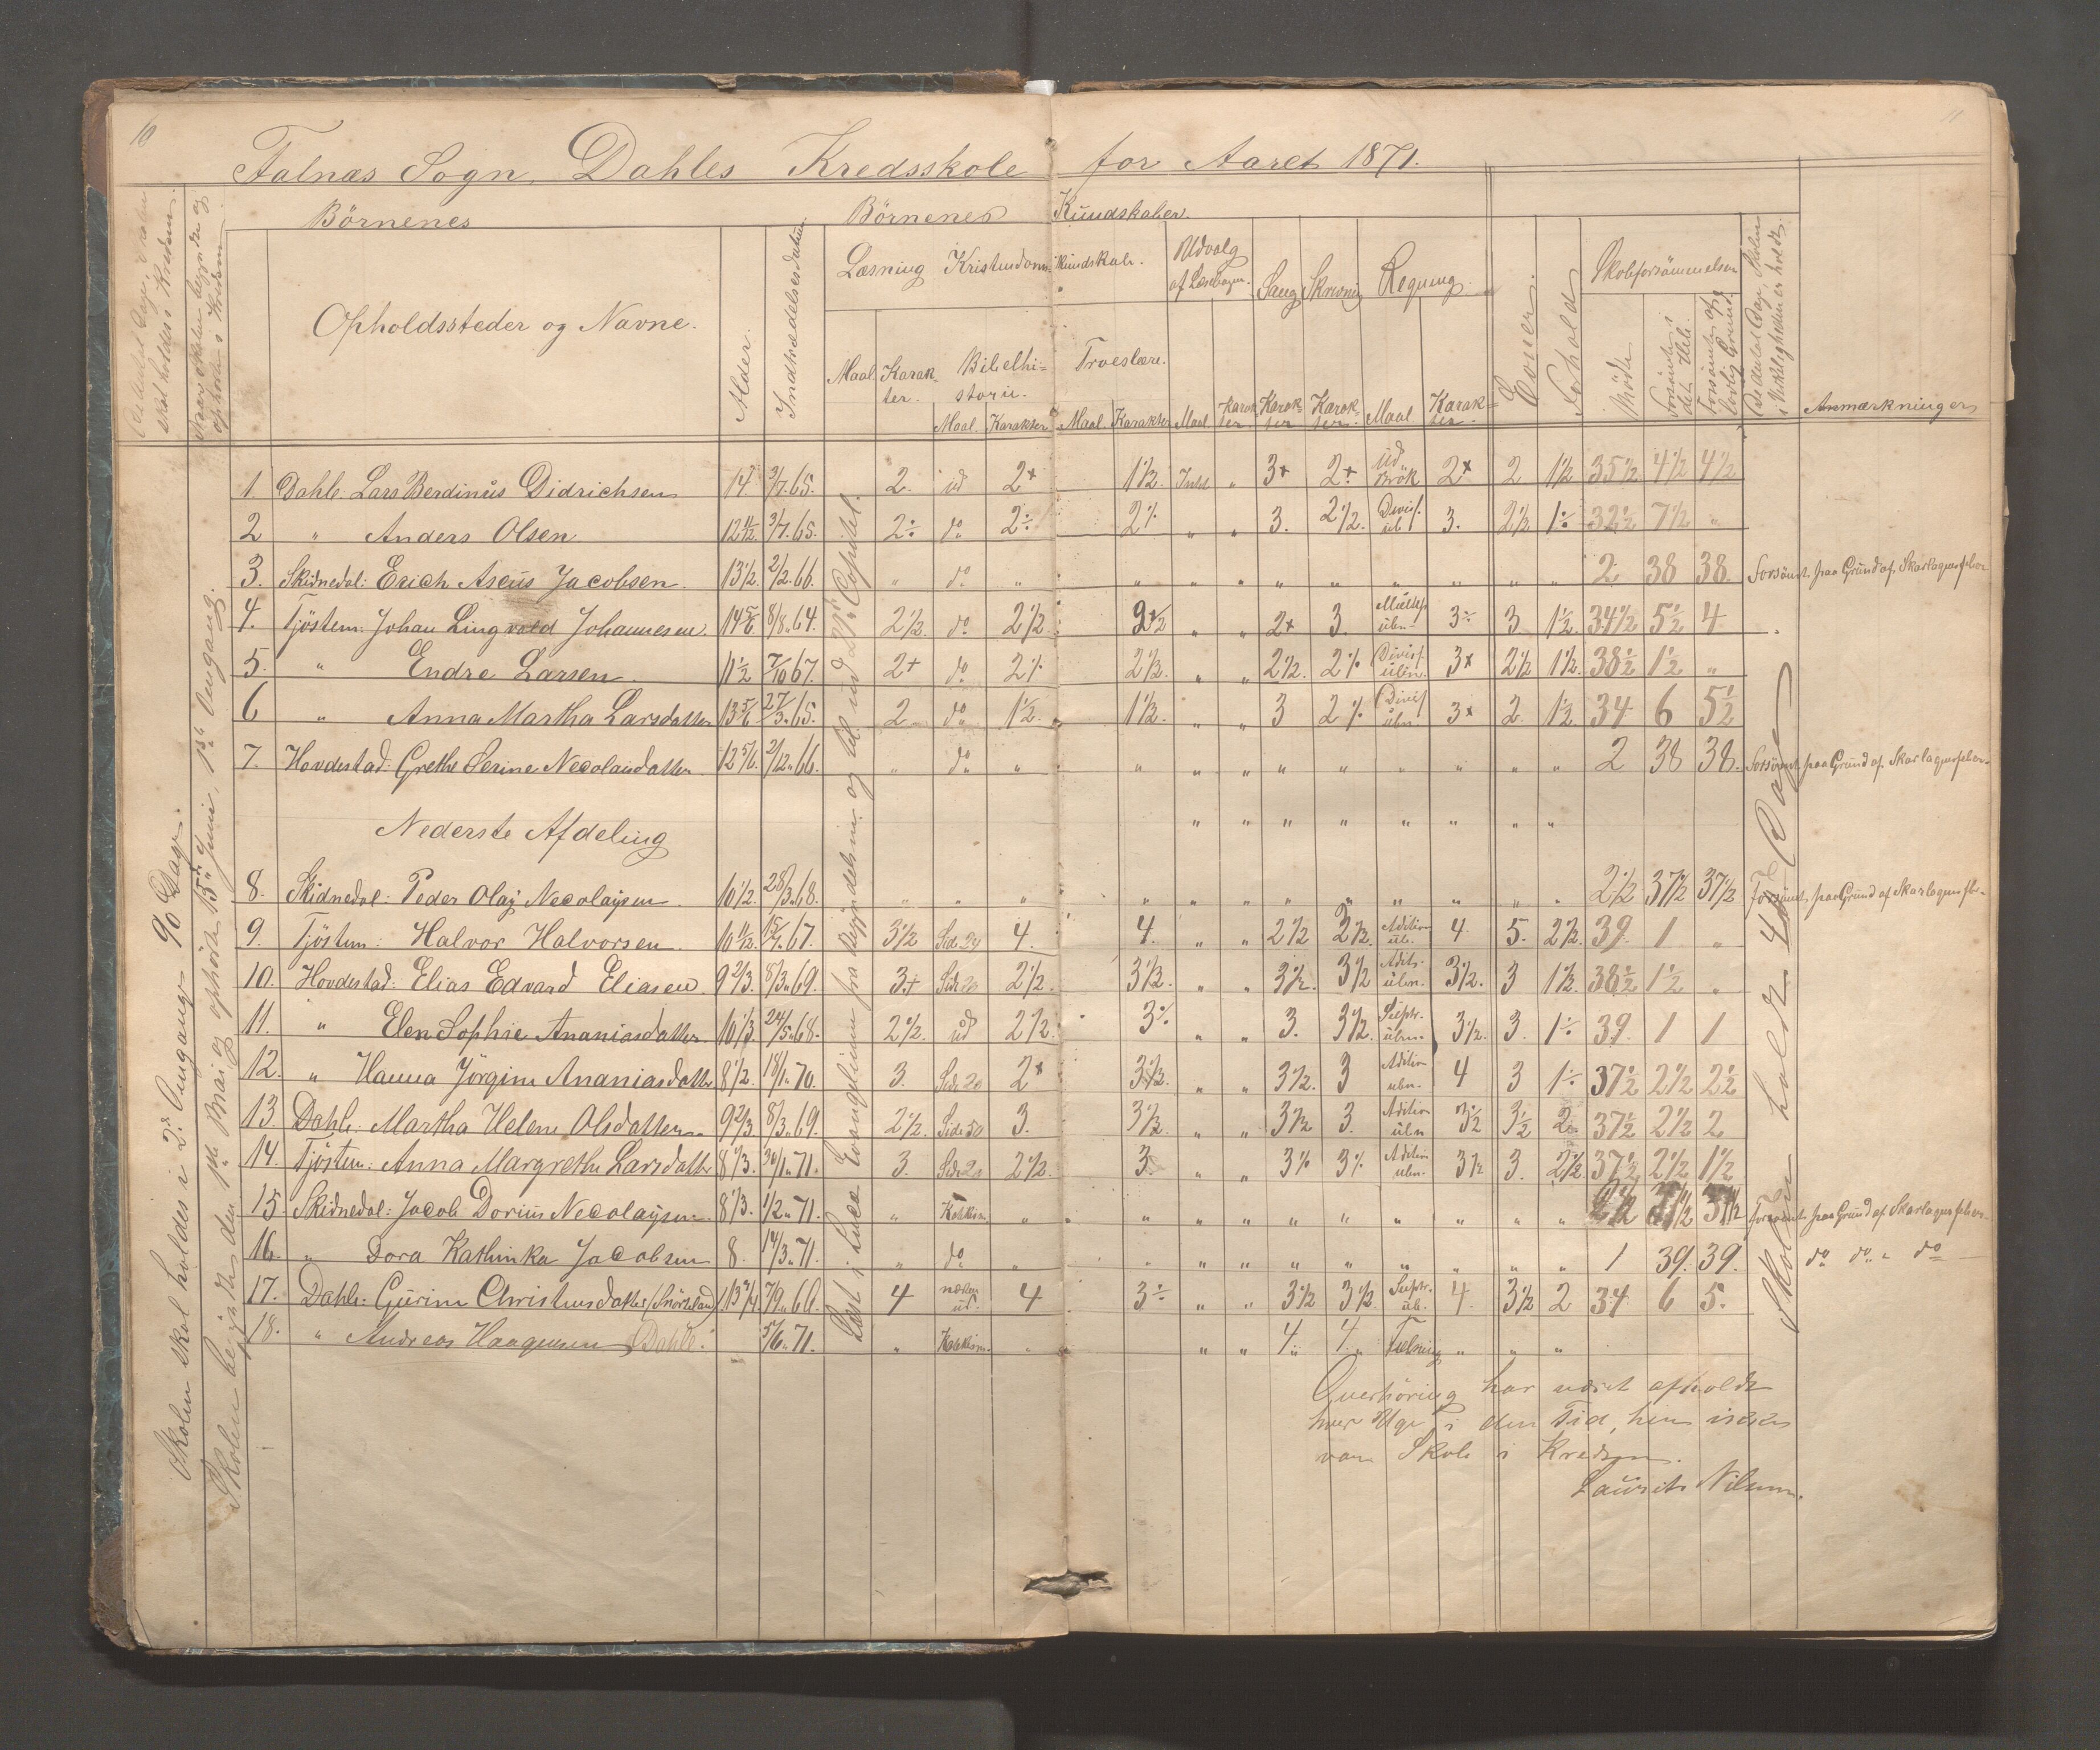 10
11
Falnæs Sogn, Dahles Kredsskole for Aaret 1871.
Børnenes Børnenes Kundskaber.
Det Antal Dage, Skolen skal holdes i Kredsen.
Naar Skolen begynder og ophører i Kredsen.
Opholdssteder og Navne.
Alder.
Indtrædelsesdatum.
Læsning Kristendomskundskab. Udvalg af Læsebogen. Sang Skrivning Regning.
Evner.
Forhold
Skoleforsømmelser
Maal. Karakter. Bibelhistorie. Troeslære.
Maal. Karakter Maal. Karakter Maal Karakter Karakter Karakter. Maal Karakter.
Mødte
Forsømte i det Hele.
Forsømte af lovlig Grund.
Det Antal Dage, Skolen i Virkeligheden er holdt
Anmærkninger
1. Dahle: Lars Berdinus Didrichsen 14 3/7.65. 2. ud 2+ 1½. Indl. " 3+ 2+ ud Brök 2+ 2 1½ 35½ 4½ 4½
2 " Anders Olsen 12 11/12. 3/7.65. 2÷ do 2÷ 2÷ " " 3. 2½. Divis. ub. 3. 2½ 1÷ 32½ 7½ "
3. Skidnedal: Erich Aseus Jacobsen. 13½. 2/2.66. " do " " " " " " " " " " 2 38 38. Forsömt paa Grund af Skarlagensfeber
4. Tjöstem: Johan Lingvold Johannesen. 14 5/6. 8/8.64. 2½. do 2½ 2½ " " 2+ 3. ubn. 3÷ 3 1½. 34½ 5½ 4
5. " Endre Larsen. 11½ 7/10 67. 2+ do 2÷ 2½. " " 2½. 2÷ Divis. ubn. 3+ 2½ 1½. 38½ 1½ "
6 " Anna Martha Larsdatter 13 5/6 27/3.65. 2 do 1½. 1½. " " 3 2÷ Divis. ubn. 3+ 2 1½ 34 6 5½
7. Hovdestad: Grethe Serine Necolaidatter. 12 5/6. 2/12.66. " do " " " " " " " " " " 2 38 38. Forsömt paa Grund af Skarlagensfeber.
Nederste Afdeling
8. Skidnedal: Peder Olaj Necolaysen. 10½. 28/3.68. " " " " " " " " " " " " 2½ 37½ 37½ Forsömt paa Grund af Skarlagensfbr.
9. Tjöstem: Halvor Halvorsen 10 11/12. 15/7.67. 3½ Side 24 4. 4. " " 2½ 2½. Adition ub. 4. 5. 2½. 39. 1 "
10. Hovdestad: Elias Edvard Eliasen. 9 2/3. 8/3.69. 3+ Side 20 2½. 3½. " " 3½. 3½ Adit. ubn. 3½. 3 1½. 38½ 1½ "
11. " Elen Sophie Ananiasdatter. 10 1/3. 24/5.68. 2½. ud 2½. 3÷ " " 3. 3½ Subtr. ubn. 3½. 3. 1÷ 39. 1 1
12. " Hanna Jörgine Ananiasdatter 8½. 18/1.70. 3. Side 20 2+ 3½. " " 3½. 3 Adition ubn. 4 3 1÷ 37½ 2½ 2½
13. Dahle: Martha Helene Olsdatter. 9 2/3. 8/3.69. 2½. Side 30 3. 3½. " " 3½ 3. Adition ubn 3½ 3½ 2 37½ 2½ 2
14. Tjöstem: Anna Margrethe Larsdatter 8 1/3. 30/1.71. 3. Side 20 2½. 3. " " 3÷ 3÷ Adition ubn. 3½ 3. 2½. 37½ 2½ 1½
15. Skidnedal: Jacob Dorius Necolaysen. 8 1/3. 1/2.71. " Katekism " " " " " " " " " " 2½ 37½ 37½ Forsömt paa Grund af Skarlagensfeber.
16. " Dora Kathinka Jacobsen 8. 14/3.71. " do " " " " " " " " " " 1 39. 39. do do " do
17. Dahle: Gurine Christensdatter (Snörteland) 13 3/4. 7/9.66. 4 næsten ud. 4 3÷ " " 3½ 3½. Subtr. ub. 4. 3½ 2 34 6 5.
18. " Andreas Haagensen Dahle. 5/6.71. " Katekism. " " " 4 " 4 " Tælning " " "
Læst i Lucæ Evangelium fra Begyndelsen og til med Capitel.
Skolen skal holdes i 2de Omgange 90 Dage.
Skolen begyndte den 1ste Mai og ophörte 15de Juni, 1ste Omgang.
Skolen holdt 40 Dage
Overhöring har været afholdt
hver Uge i den Tid, her ikke
var Skole i Kredsen.
Laurits Nilsen.